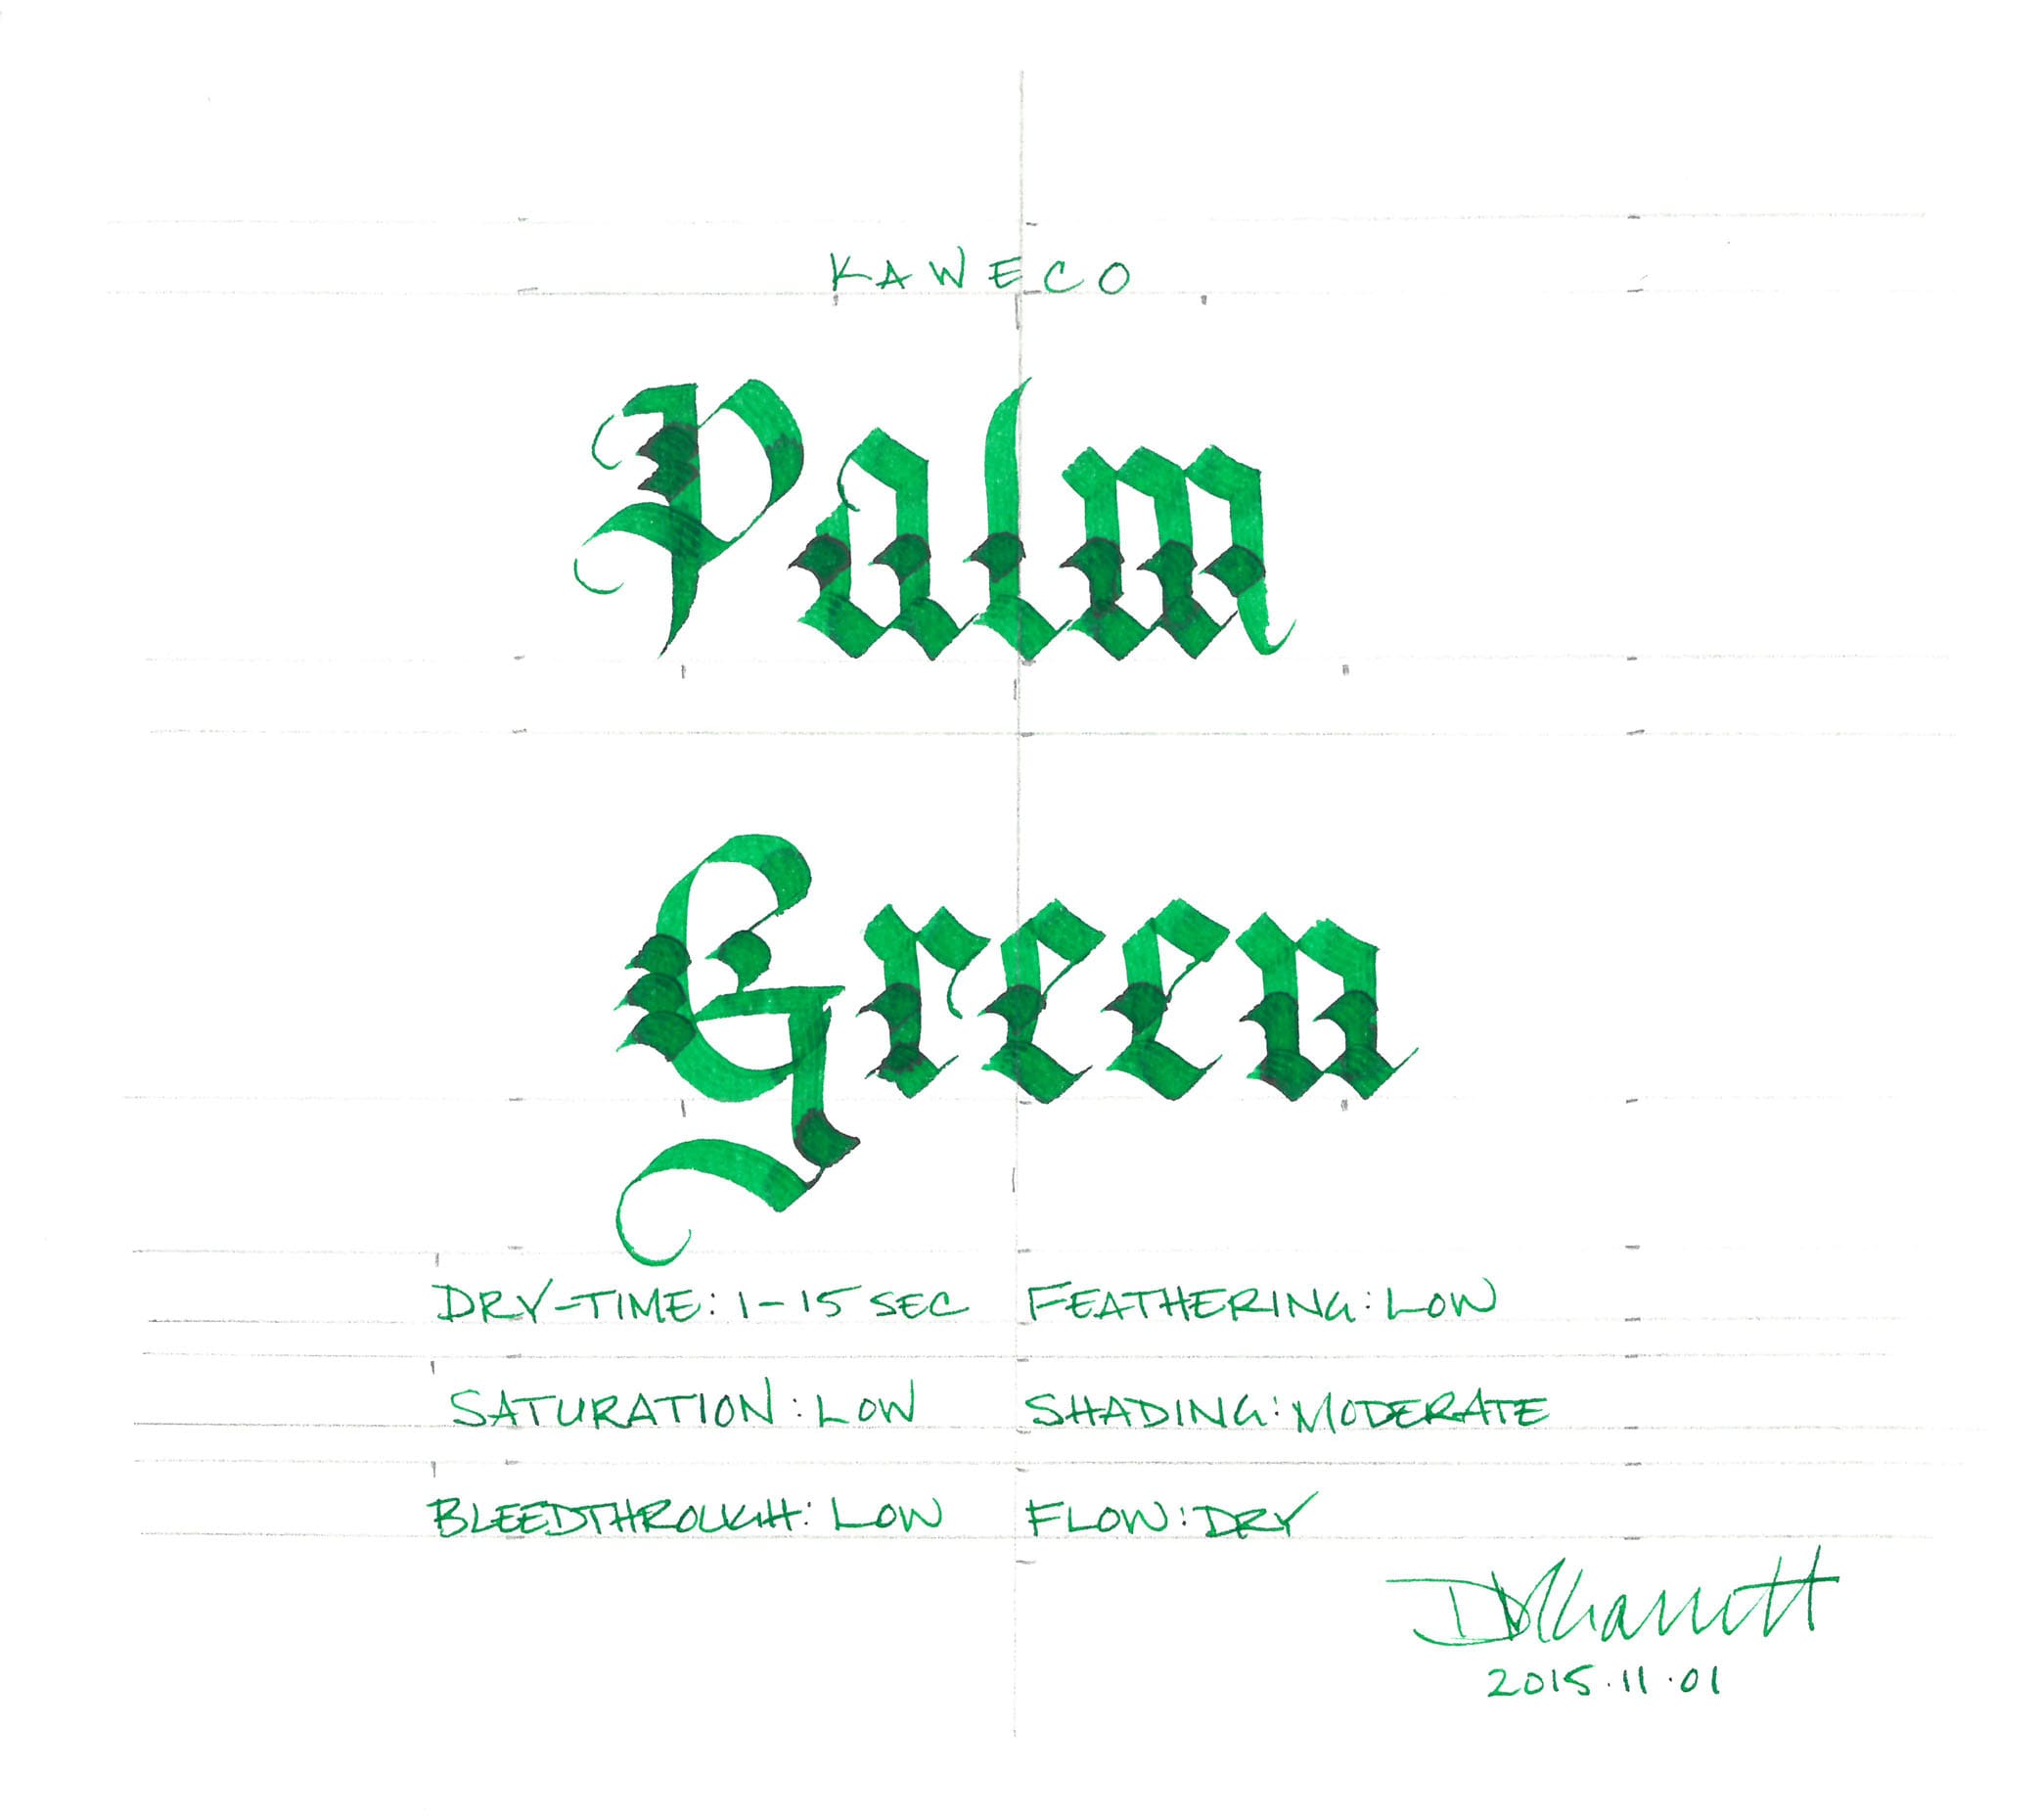 KAWECO
Palm
Green
DRY-TIME: 1-15 SEC FEATHERING: LOW
SATURATION: LOW SHADING: MODERATE
BLEEDTHROUGH: LOW FLOW: DRY
2015.11.01